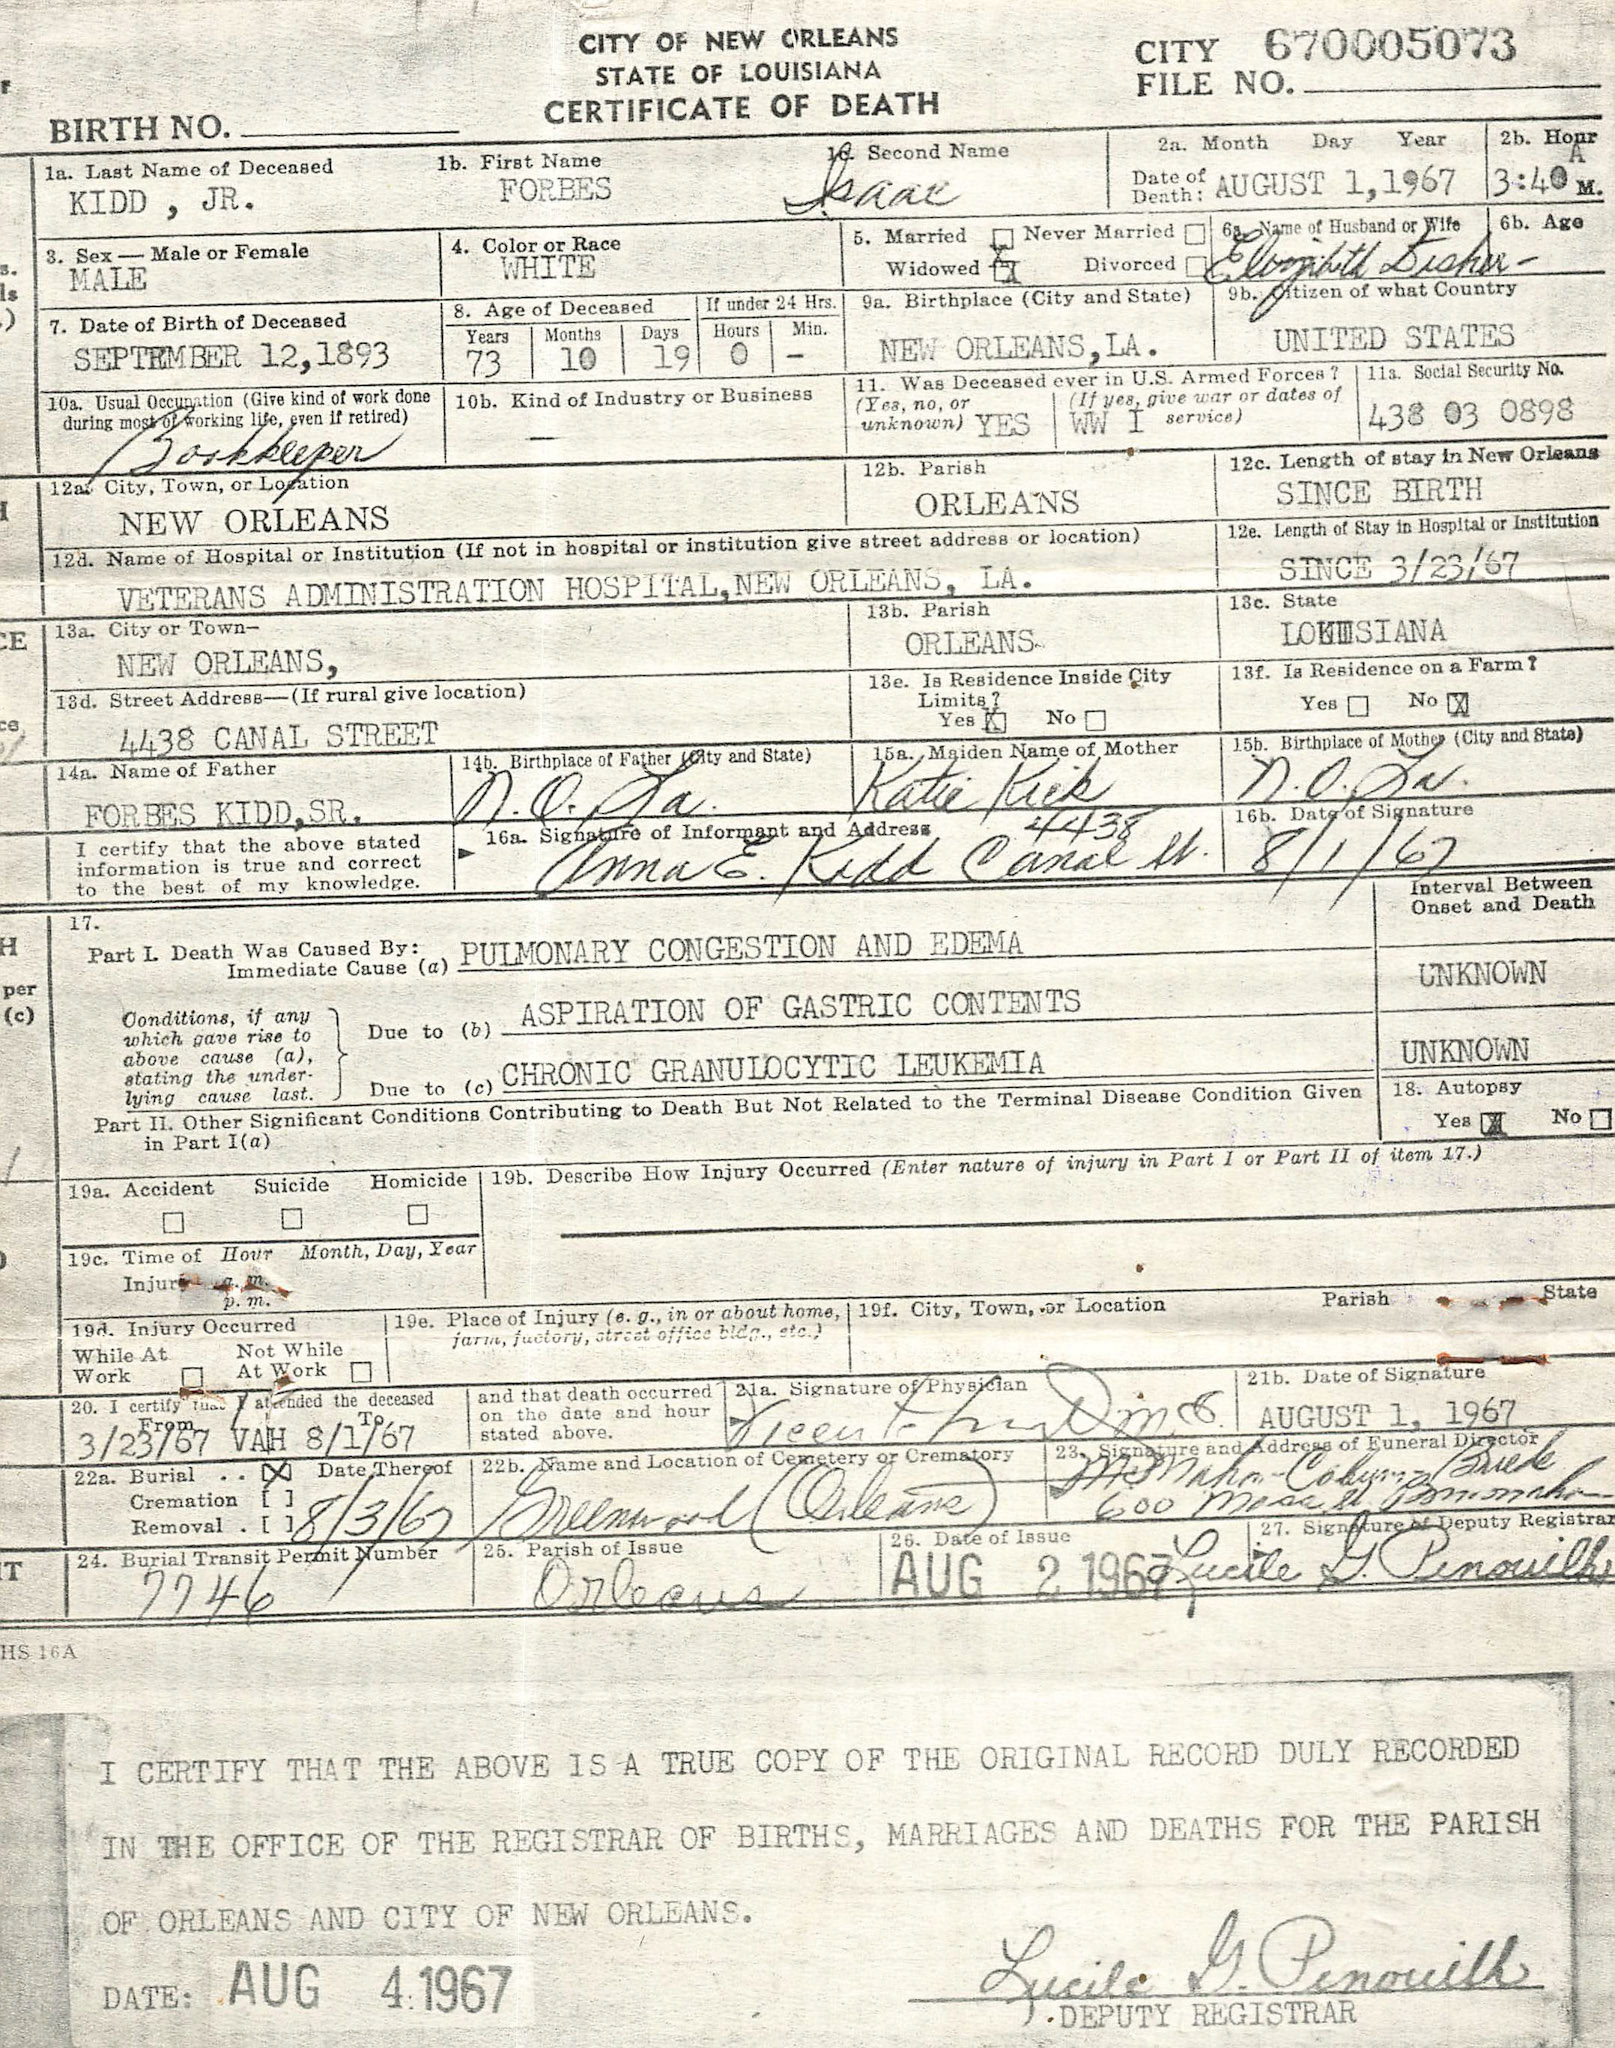 CITY OF NEW ORLEANS
STATE OF LOUISIANA
CERTIFICATE OF DEATH
CITY FILE NO. 670005073
BIRTH NO.
1a. Last Name of Deceased
KIDD , JR.
1b. First Name
FORBES
1c. Second Name
Isaac
2a. Month Day Year
Date of Death: AUGUST 1,1967
2b. Hour
3:40 A M.
3. Sex — Male or Female
MALE
4. Color or Race
WHITE
5. Married Never Married
Widowed X Divorced
6a. Name of Husband or Wife
Elizabeth Disher-
6b. Age
7. Date of Birth of Deceased
SEPTEMBER 12,1893
8. Age of Deceased
If under 24 Hrs.
Years Months Days Hours Min.
73 10 19 0 -
9a. Birthplace (City and State)
NEW ORLEANS,LA.
9b. Citizen of what Country
UNITED STATES
10a. Usual Occupation (Give kind of work done
during most of working life, even if retired)
Bookkeeper
10b. Kind of Industry or Business
—
11. Was Deceased ever in U.S. Armed Forces?
(Yes, no, or unknown) YES
(If yes, give war or dates of service) WW I
11a. Social Security No.
438 03 0898
12a. City, Town, or Location
NEW ORLEANS
12b. Parish
ORLEANS
12c. Length of stay in New Orleans
SINCE BIRTH
12d. Name of Hospital or Institution (If not in hospital or institution give street address or location)
VETERANS ADMINISTRATION HOSPITAL,NEW ORLEANS, LA.
12e. Length of Stay in Hospital or Institution
SINCE 3/23/67
13a. City or Town—
NEW ORLEANS,
13b. Parish
ORLEANS
13c. State
LOUISIANA
13d. Street Address—(If rural give location)
4438 CANAL STREET
13e. Is Residence Inside City
Limits?
Yes X No
13f. Is Residence on a Farm?
Yes No X
14a. Name of Father
FORBES KIDD,SR.
14b. Birthplace of Father (City and State)
N.O. La.
15a. Maiden Name of Mother
Katie Kick
15b. Birthplace of Mother (City and State)
N.O. La.
I certify that the above stated
information is true and correct
to the best of my knowledge.
16a. Signature of Informant and Address
Anna E. Kidd 4438 Canal St.
16b. Date of Signature
8/1/67
17.
Part I. Death Was Caused By:
Immediate Cause (a) PULMONARY CONGESTION AND EDEMA
Interval Between
Onset and Death
UNKNOWN
Conditions, if any
which gave rise to
above cause (a),
stating the under-
lying cause last.
Due to (b) ASPIRATION OF GASTRIC CONTENTS
Due to (c) CHRONIC GRANULOCYTIC LEUKEMIA
UNKNOWN
Part II. Other Significant Conditions Contributing to Death But Not Related to the Terminal Disease Condition Given
in Part I(a)
18. Autopsy
Yes X No
19a. Accident Suicide Homicide
19b. Describe How Injury Occurred (Enter nature of injury in Part I or Part II of item 17.)
19c. Time of Hour Month, Day, Year
Injury a. m.
p. m.
19d. Injury Occurred
While At Work
Not While At Work
19e. Place of Injury (e. g., in or about home,
farm, factory, street office bldg., etc.)
19f. City, Town, or Location Parish State
20. I certify that I attended the deceased
From To
3/23/67 VAH 8/1/67
and that death occurred
on the date and hour
stated above.
21a. Signature of Physician
21b. Date of Signature
AUGUST 1, 1967
22a. Burial . . X Date Thereof
Cremation [ ]
Removal . [ ] 8/3/67
22b. Name and Location of Cemetery or Crematory
Greenwood (Orleans)
23. Signature and Address of Funeral Director
600
24. Burial Transit Permit Number
7746
25. Parish of Issue
Orleans
26. Date of Issue
AUG 2 1967
27. Signature of Deputy Registrar
Lucile G. Penouilh
HS 16A
I CERTIFY THAT THE ABOVE IS A TRUE COPY OF THE ORIGINAL RECORD DULY RECORDED
IN THE OFFICE OF THE REGISTRAR OF BIRTHS, MARRIAGES AND DEATHS FOR THE PARISH
OF ORLEANS AND CITY OF NEW ORLEANS.
DATE: AUG 4 1967
Lucile G. Penouilh
DEPUTY REGISTRAR